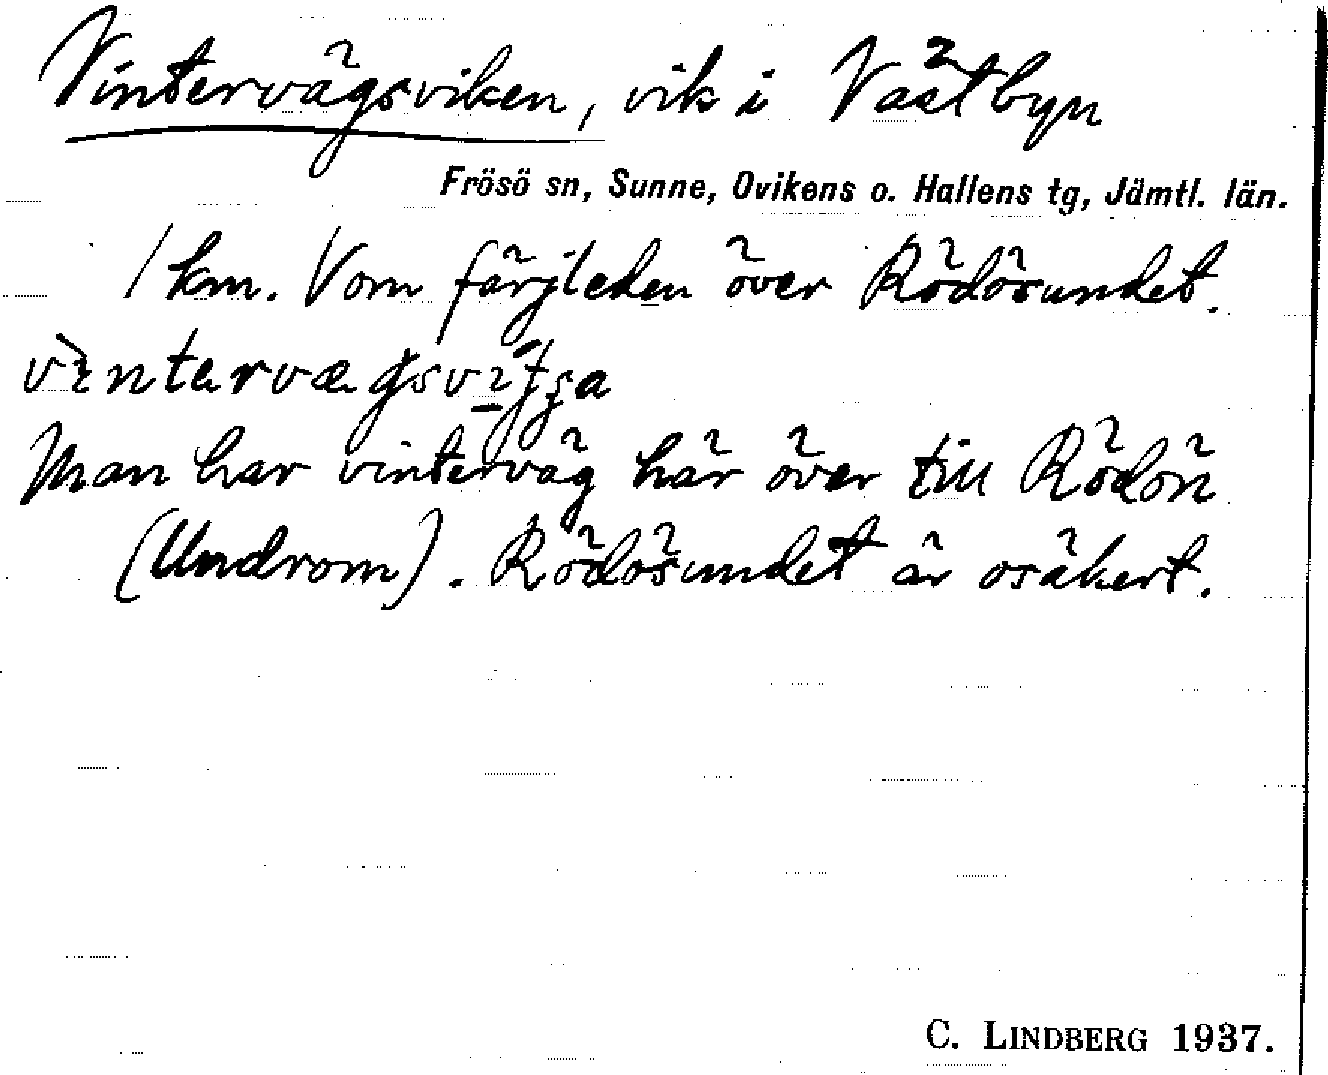 Vintervägsviken, vik i Västbyn
Frösö sn, Sunne, Ovikens o. Hallens tg, Jämtl. län.
1 km. V om färjleden över Rödösundet.
Man har vinterväg här över till Rödön
(Undrom). Rödösundet är osäkert.
C. LINDBERG 1937.